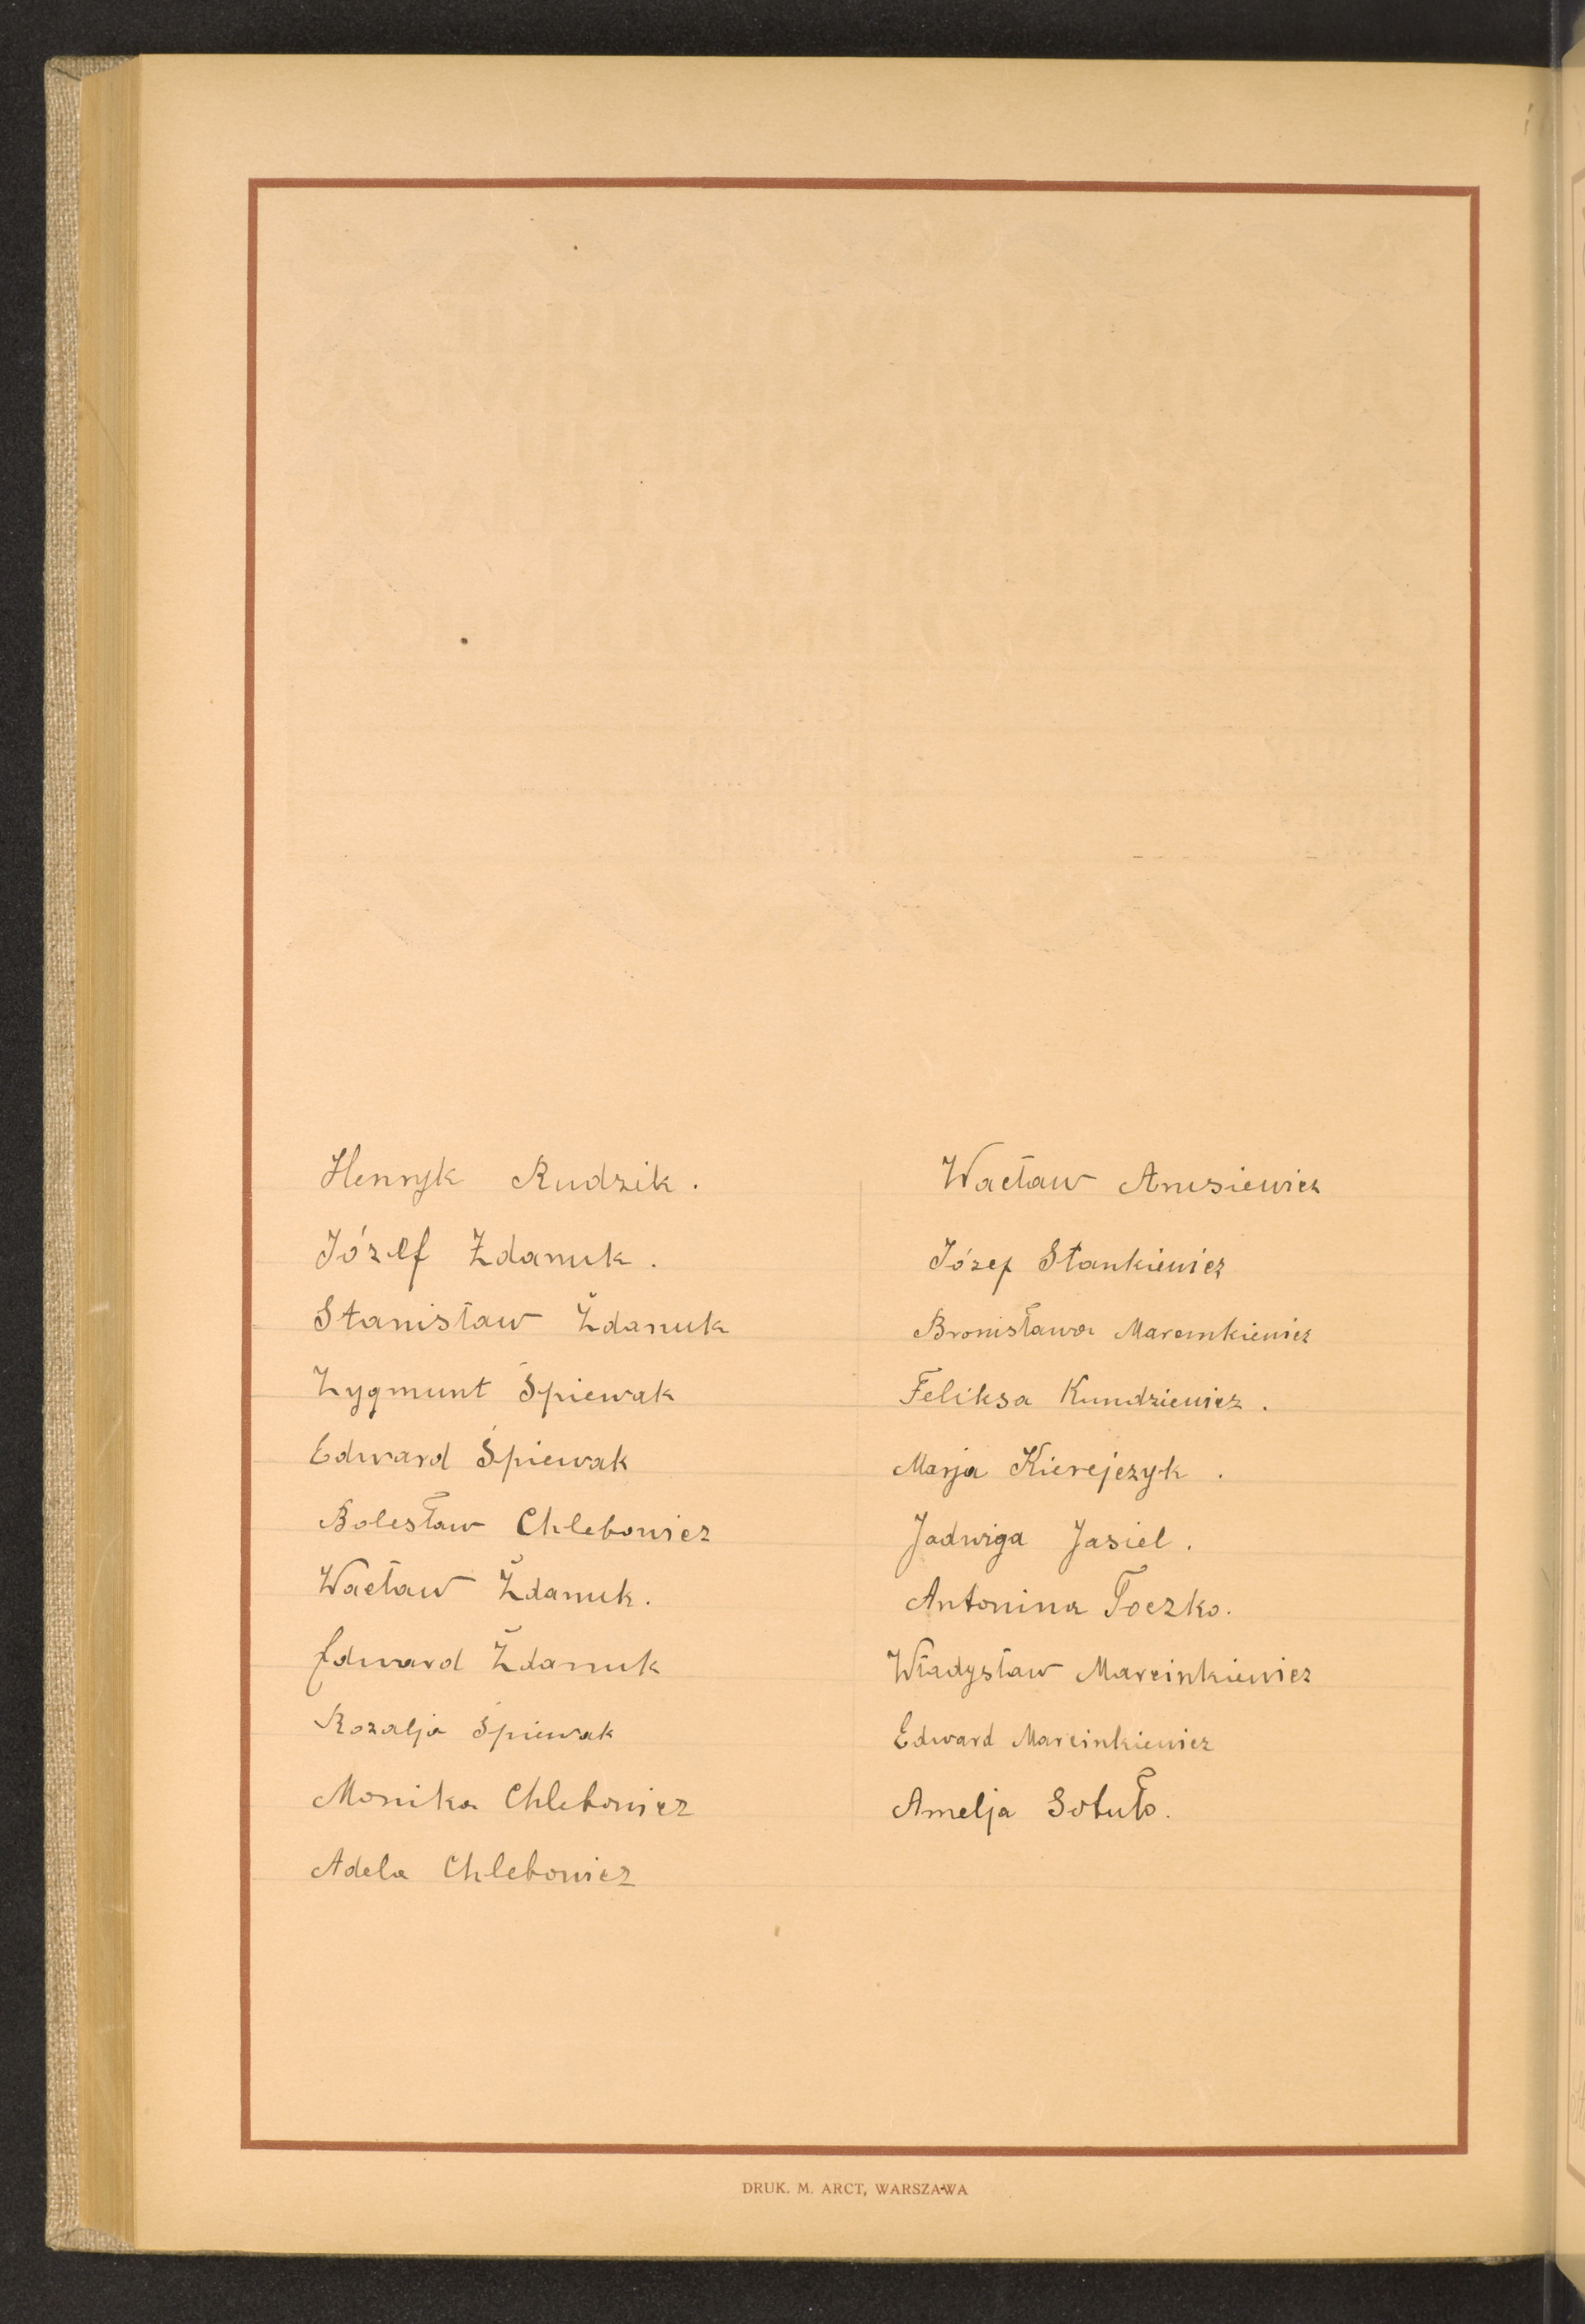 Henryk Rudzik.
Józef Żdanuk.
Stanisław Żdanuk
Zygmunt Śpiewak
Edward Śpiewak
Bolesław Chlebowicz
Wacław Żdanuk.
Edward Żdanuk
Rozalja Śpiewak
Monika Chlebowicz
Adela Chlebowicz
Wacław Anusiewicz
Józef Stankiewicz
Bronisława Marcinkiewicz
Feliksa Kundziewicz.
Marja Kierejczyk.
Jadwiga Jasiel.
Antonina Toczko.
Władysław Marcinkiewicz
Edward Marcinkiewicz
Amelja
DRUK. M. ARCT, WARSZAWA